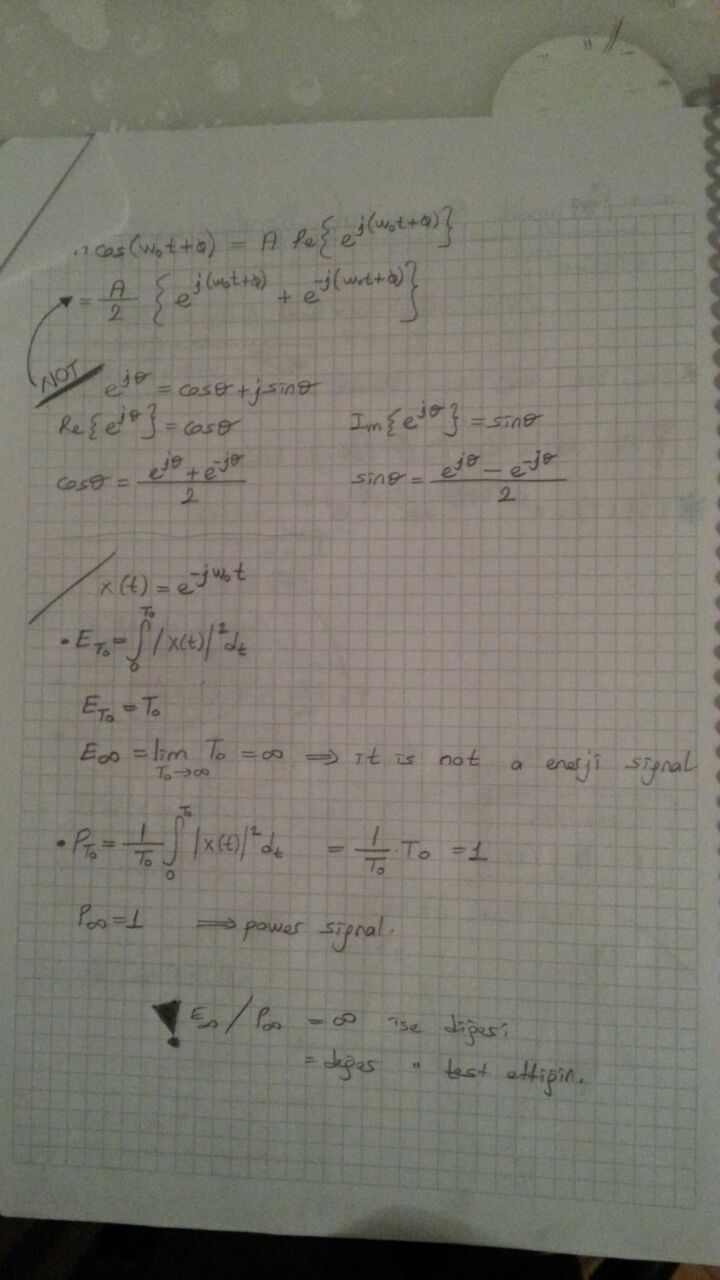 cos(w₀t+φ) = A Re{e^j(w₀t+φ)}
= A/2 {e^j(w₀t+φ) + e^-j(w₀t+φ)}
NOT e^jθ = cosθ+jsinθ
Re{e^jθ} = cosθ Im{e^jθ} = sinθ
cosθ = (e^jθ + e^-jθ)/2 sinθ = (e^jθ - e^-jθ)/2
x(t) = e^-jw₀t
• E_T₀ = ∫₀^T₀ |x(t)|² dt
E_T₀ = T₀
E∞ = lim T₀→∞ T₀ = ∞ ⇒ it is not a enerji signal
• P_T₀ = 1/T₀ ∫₀^T₀ |x(t)|² dt = 1/T₀ · T₀ = 1
P∞ = 1 ⇒ power signal.
! E∞ / P∞ = ∞ ise diğeri
= değer " test ettiğin.